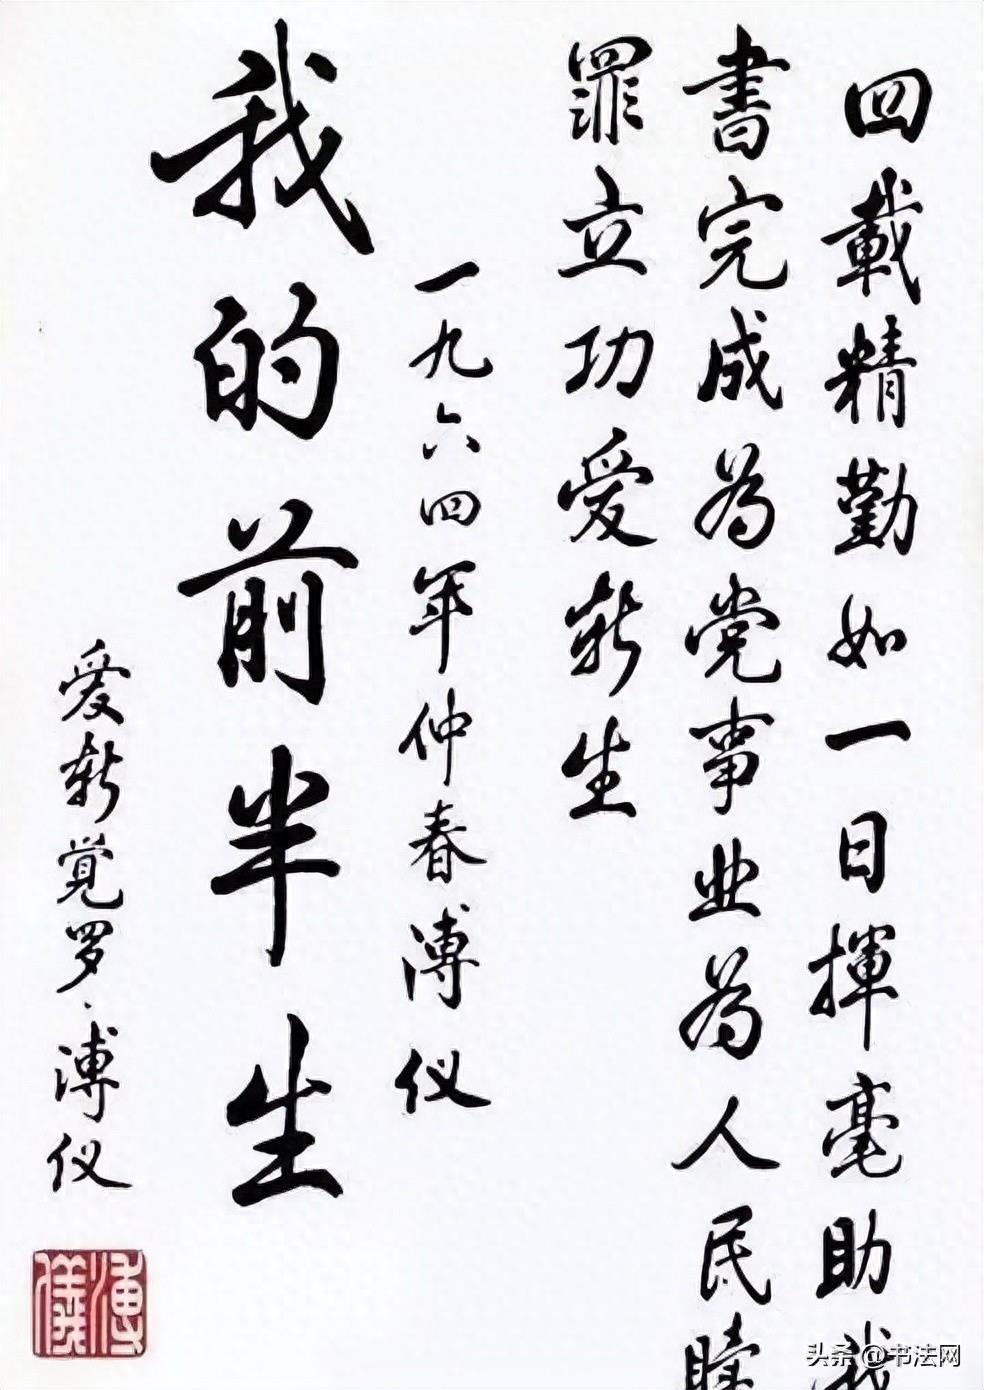 四載精勤如一日揮毫助我
書完成为党事业为人民贖
罪立功爱新生
一九六四年仲春溥仪
我的前半生
爱新覚罗·溥仪
溥儀
头条 @书法网